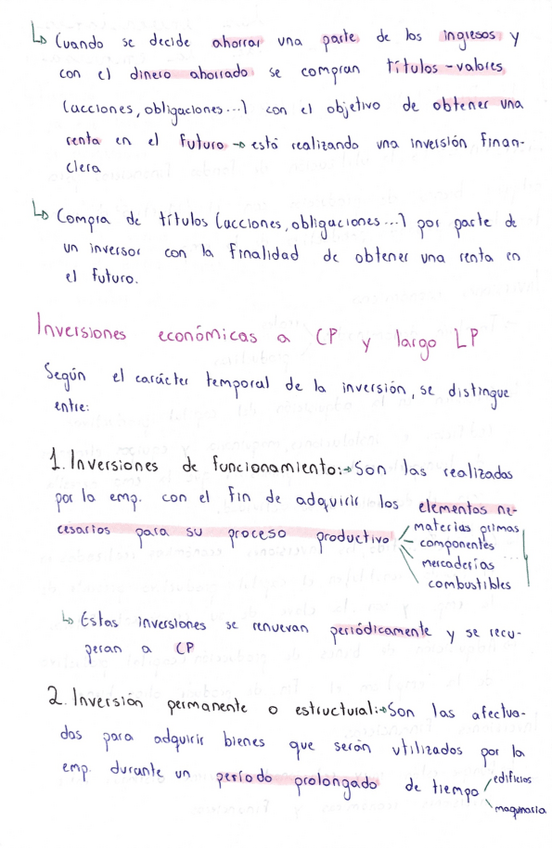 ↳ Cuando se decide ahorrar una parte de los ingresos y
con el dinero ahorrado se compran títulos-valores
(acciones, obligaciones...) con el objetivo de obtener una
renta en el futuro → está realizando una inversión finan-
ciera
↳ Compra de títulos (acciones, obligaciones...) por parte de
un inversor con la finalidad de obtener una renta en
el futuro.
Inversiones económicas a CP y largo LP
Según el carácter temporal de la inversión, se distingue
entre:
1. Inversiones de funcionamiento:→ Son las realizadas
por la emp. con el fin de adquirir los elementos ne-
cesarios para su proceso productivo
materias primas
componentes
mercaderías
combustibles
↳ Estas inversiones se renuevan periódicamente y se recu-
peran a CP
2. Inversión permanente o estructural:→ Son las afectua-
das para adquirir bienes que serán utilizados por la
emp. durante un período prolongado de tiempo
edificios
maquinaria